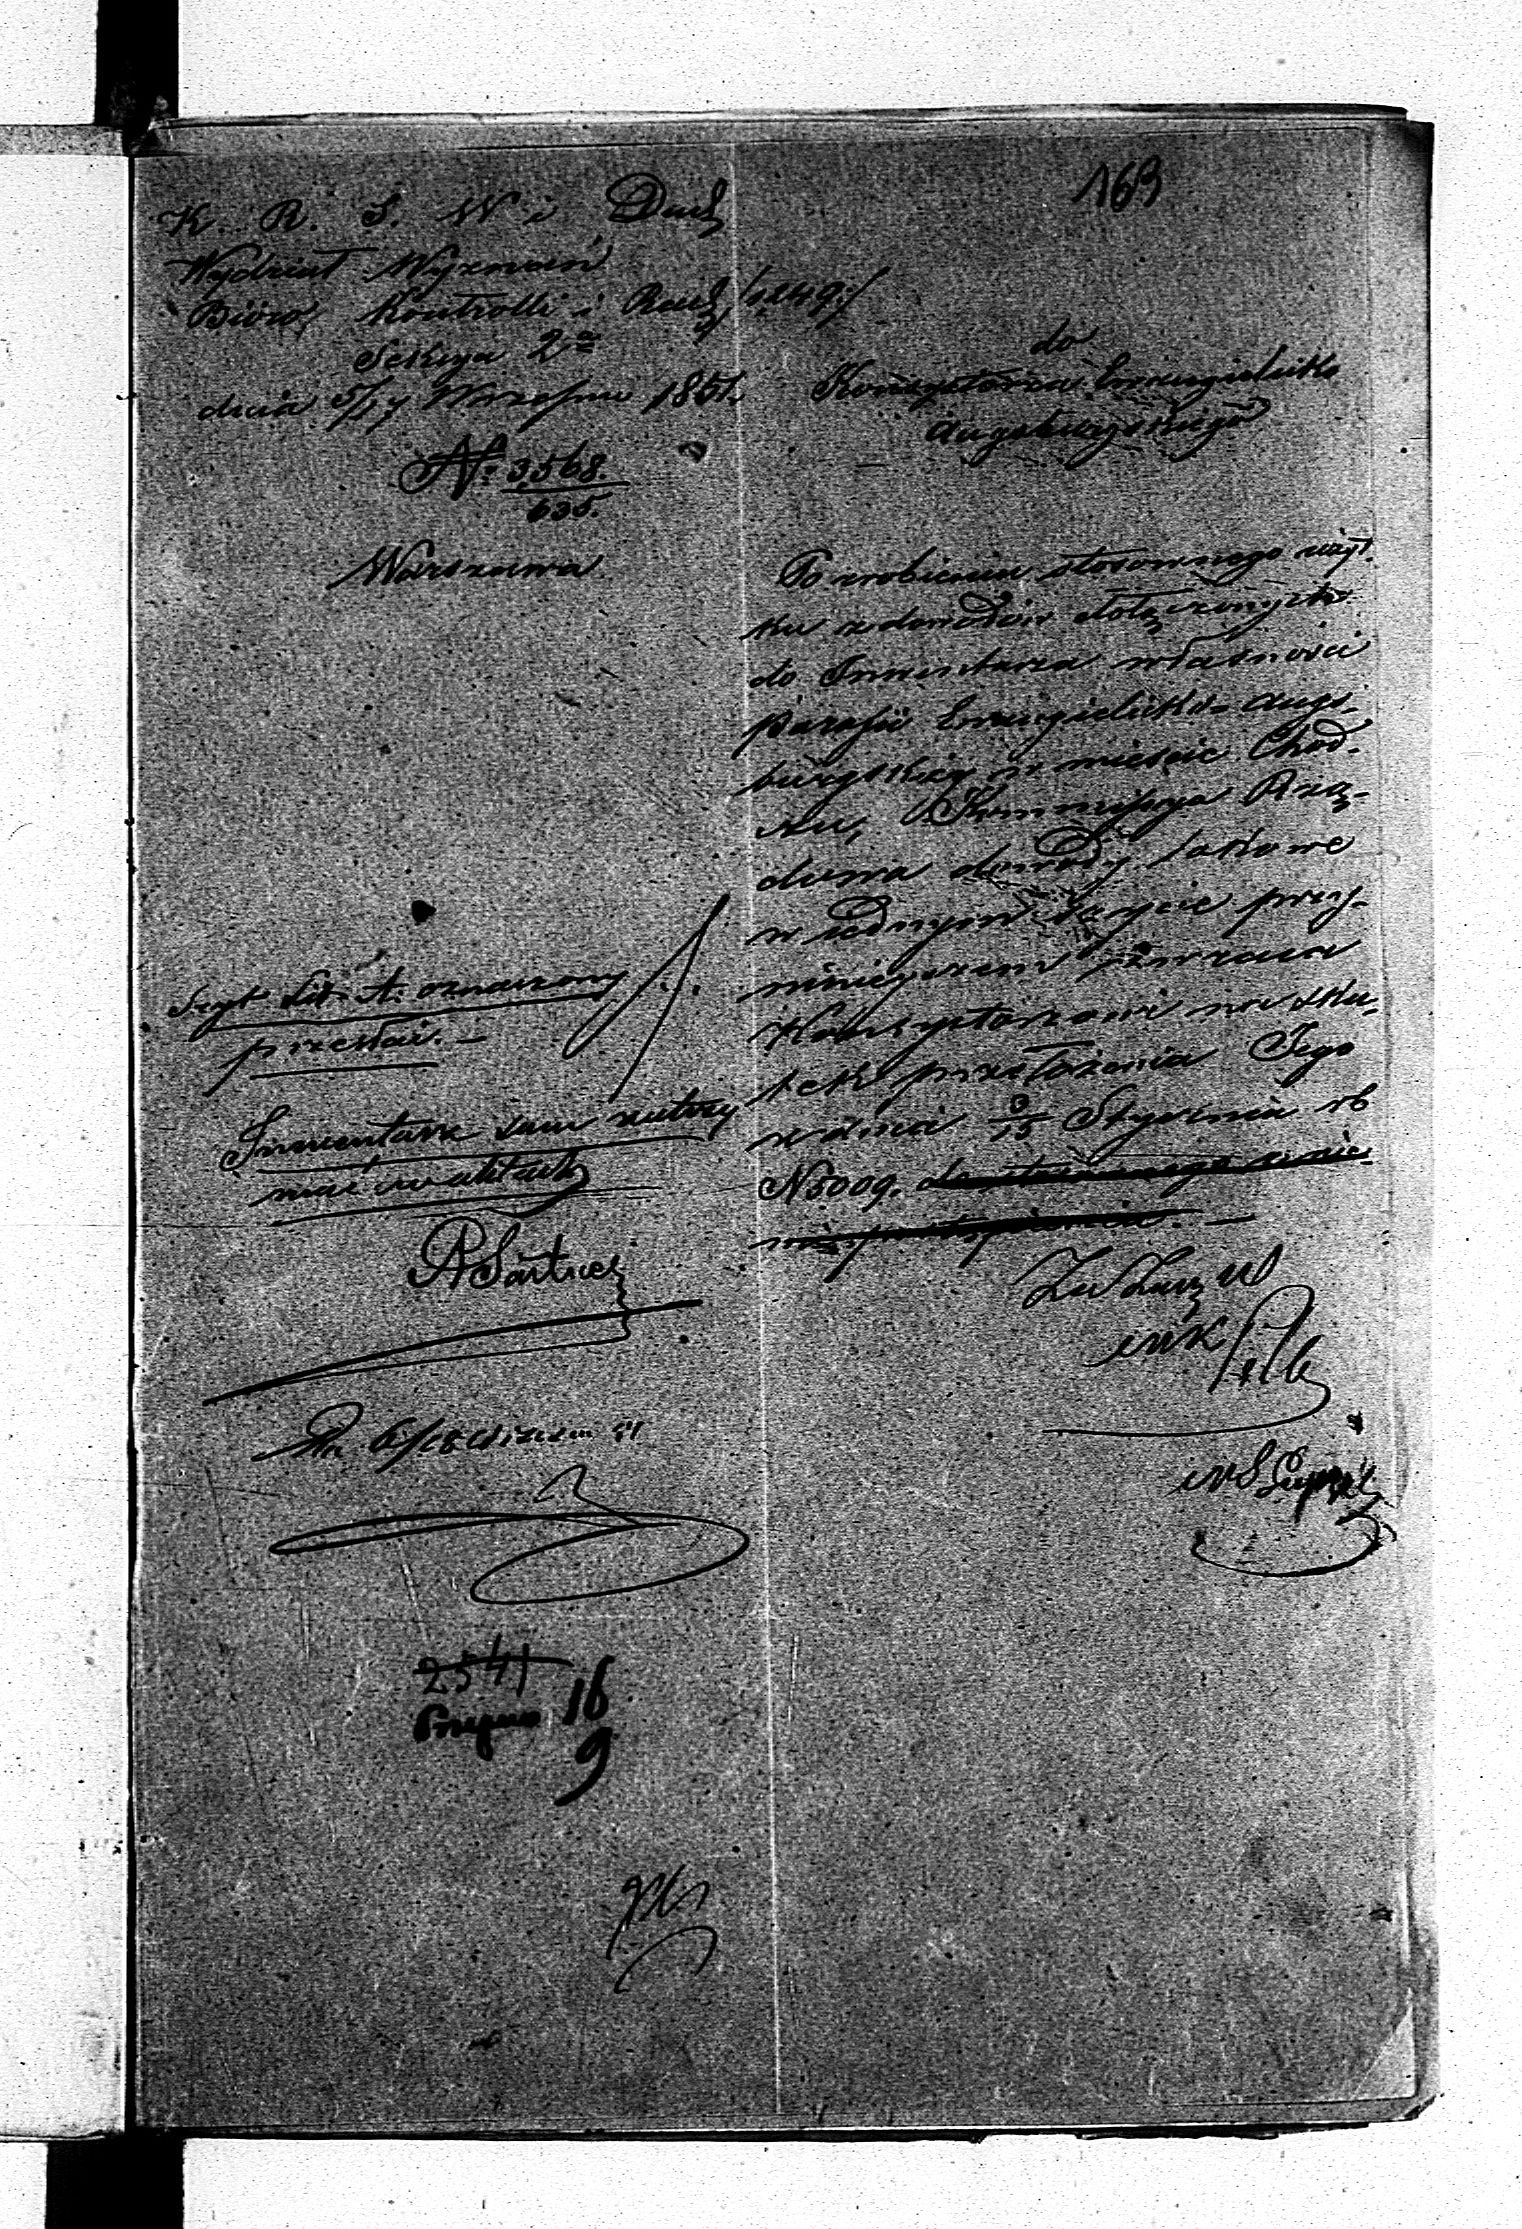 163
K. R. S. W i Duch
Wydział Wyznań
Biuro Kontrolli i Rach /:249:/
Sekcya 2a
dnia 5/17 Września 1851.
No. 3568
635.
Warszawa
do
Konsystorza Ewangelicko
Augsburskiego
Po zrobieniu stosownego użyt-
ku z dowodów dołączonych
do Inwentarza własności
parafii Ewangelicko-Augs-
burgskiej w mieście Chod-
czu, Kommissya Rzą-
dowa dowody takowe
w jednym Szycie przy
niniejszem zwraca
Konsystorzowi na sku-
tek przełożenia Jego
z dnia 3/15 Stycznia rb
N 5009.
Szyt Lit. A. oznaczony
przesłać. —
Inwentarz sam zatrzy
mać w aktach
Za Zarz W
2541
16
9